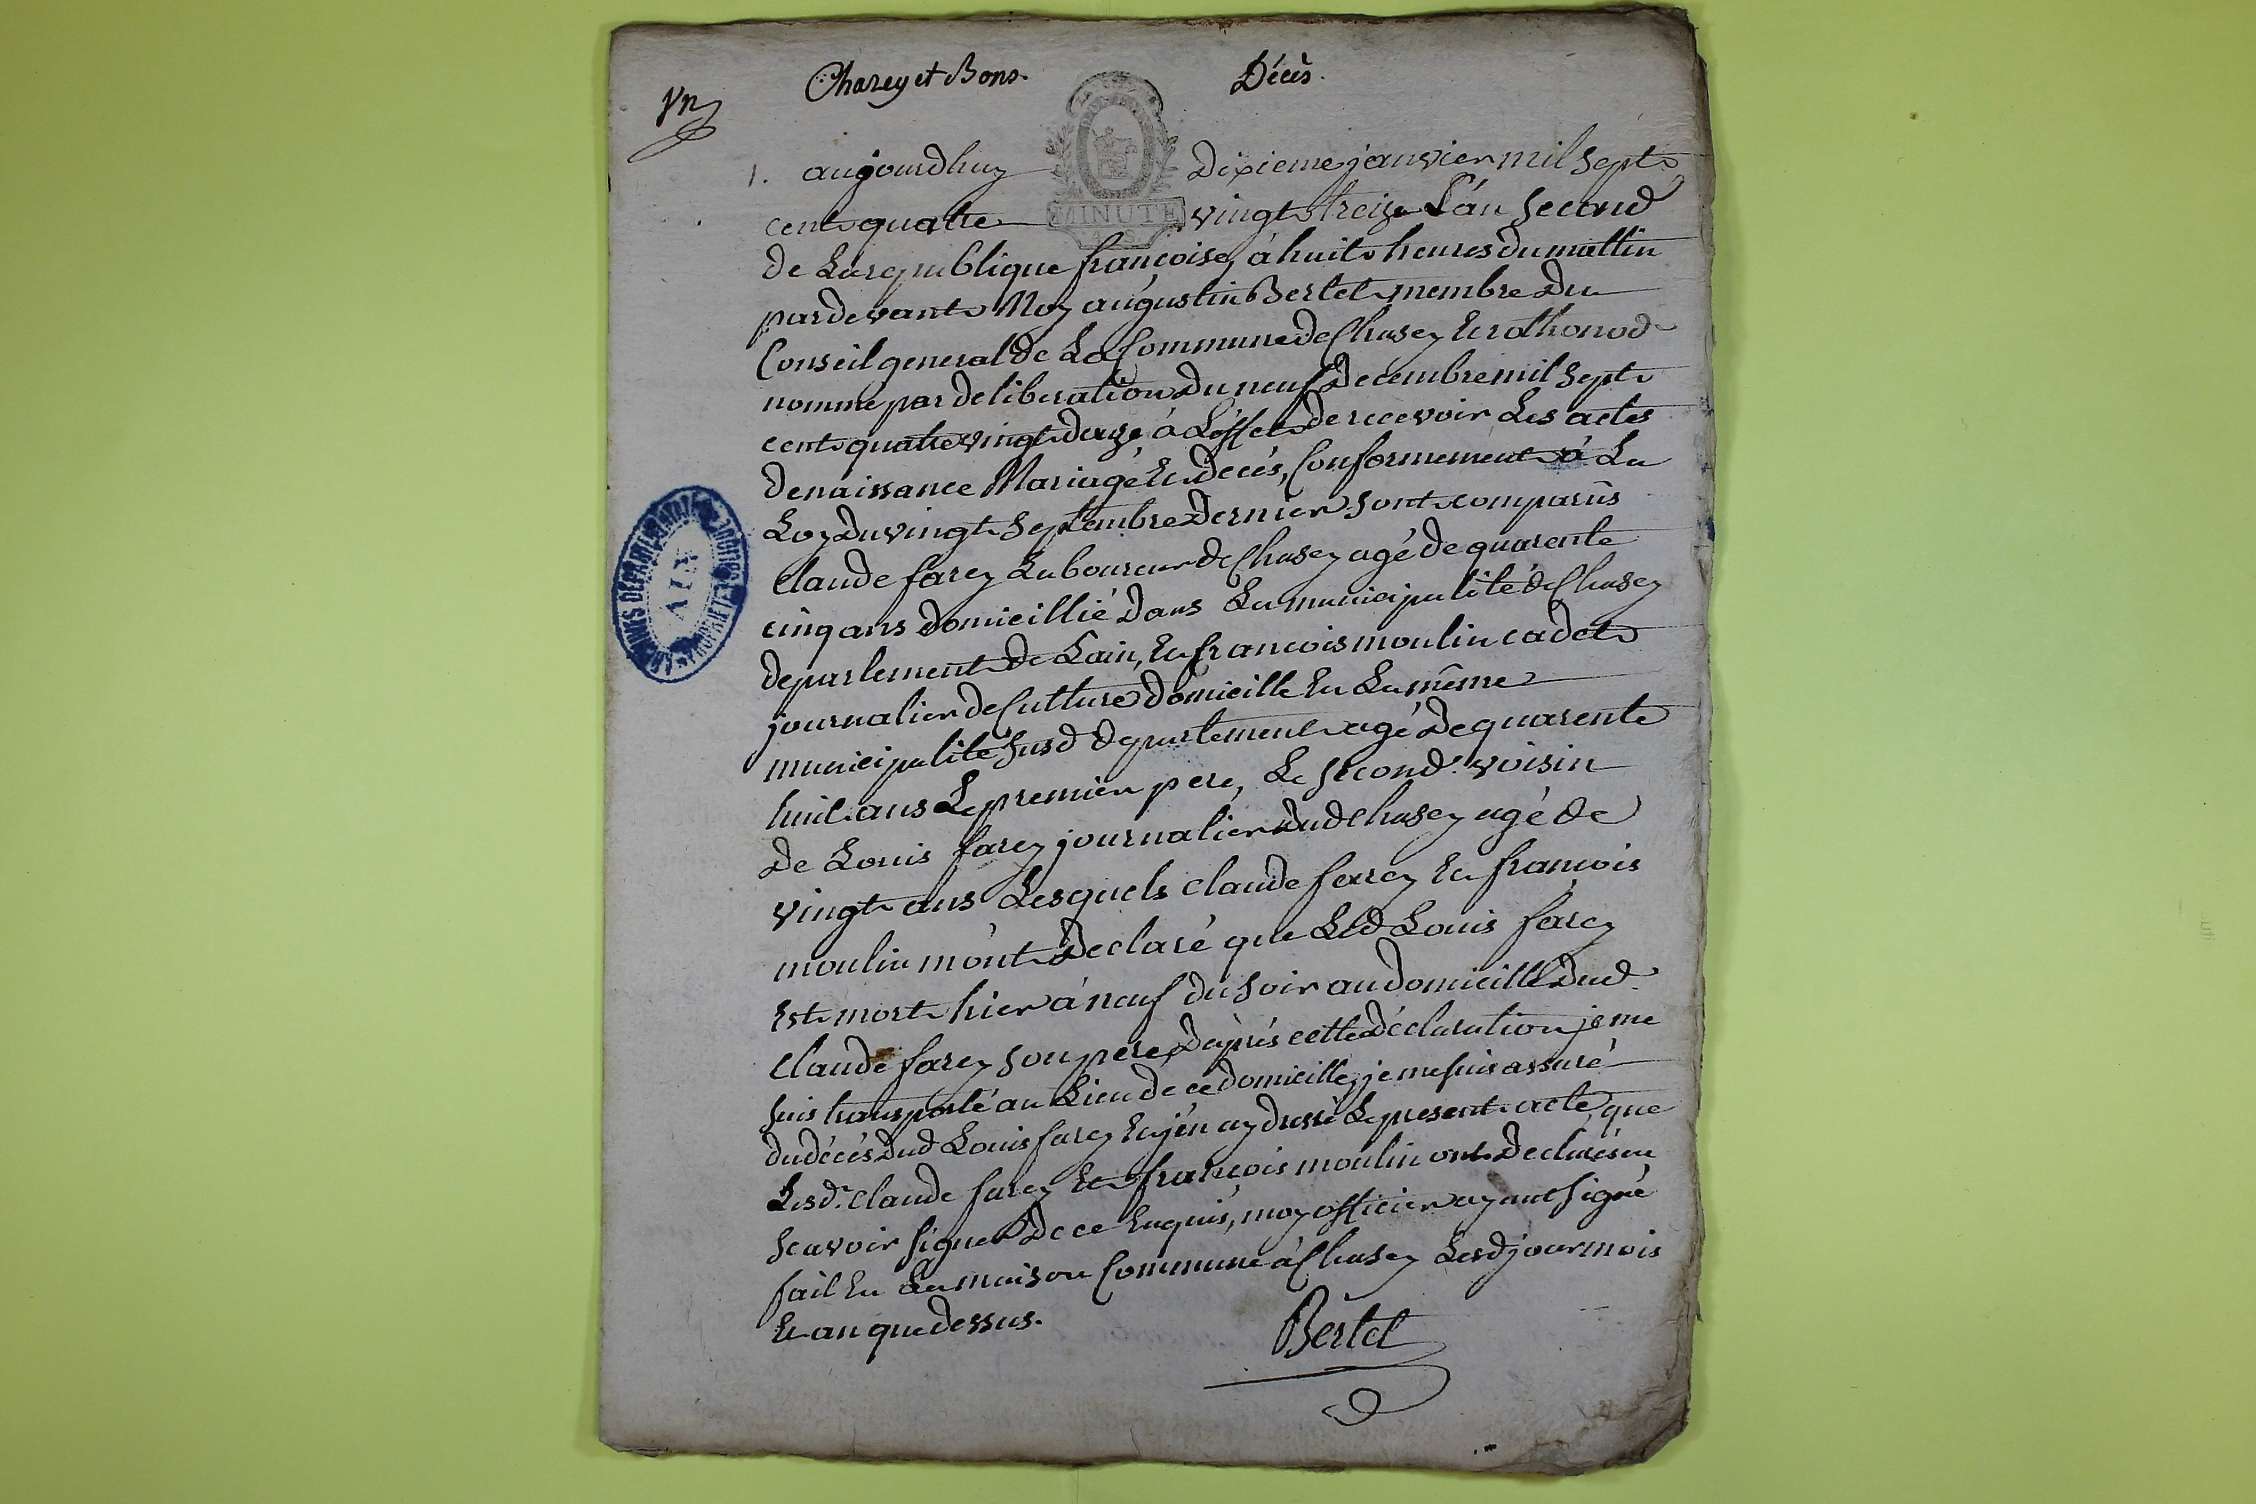 Chazey et Bons. Décès.
Vn
1. aujourdhuy dixieme janvier mil sept
cent quatre MINUTE vingt treize L'an second
de La republique francoise, à huit heures du mattin
pardevant Moy augustin Bertet membre du
Conseil general de La Commune de Chasey Et rothonod
nommé par deliberation du neuf Decembre mil sept
cent quatre vingt douze à L'effet de recevoir Les actes
de naissance Mariage Et decés, Conformement à La
Loy du vingt septembre dernier sont comparus
Claude farcy Laboureur de Chasey agé de quarente
cinq ans domicillié dans La municipalité de Chasey
departement de Lain, Et francois moulin cadet
journalier de Culture domicille En La même
municipalité susd departement agé de quarente
huit ans Le premier pere, Le second voisin
de Louis farcy journalier dud Chasey agé de
vingt ans Lesquels Claude farcy Et francois
moulin m'ont declaré que Led Louis farcy
Est mort hier à neuf du soir au domicille dud
Claude farcy son pere, D'après cette déclaration je me
suis transporté au Lieu de ce domicille, je me suis assuré
du décés dud Louis farcy Et j'en ay dressé Le present acte que
Lesd. Claude farcy Et francois moulin ont declaré ne
scavoir signer de ce Enquis, moy officier ayant signé
fait En La maison Commune à Chasey Lesd jour mois
Et an que dessus.
Bertet
ARCHIVES DÉPARTEMENTALES
AIN
PROPRIÉTÉ PUBLIQUE